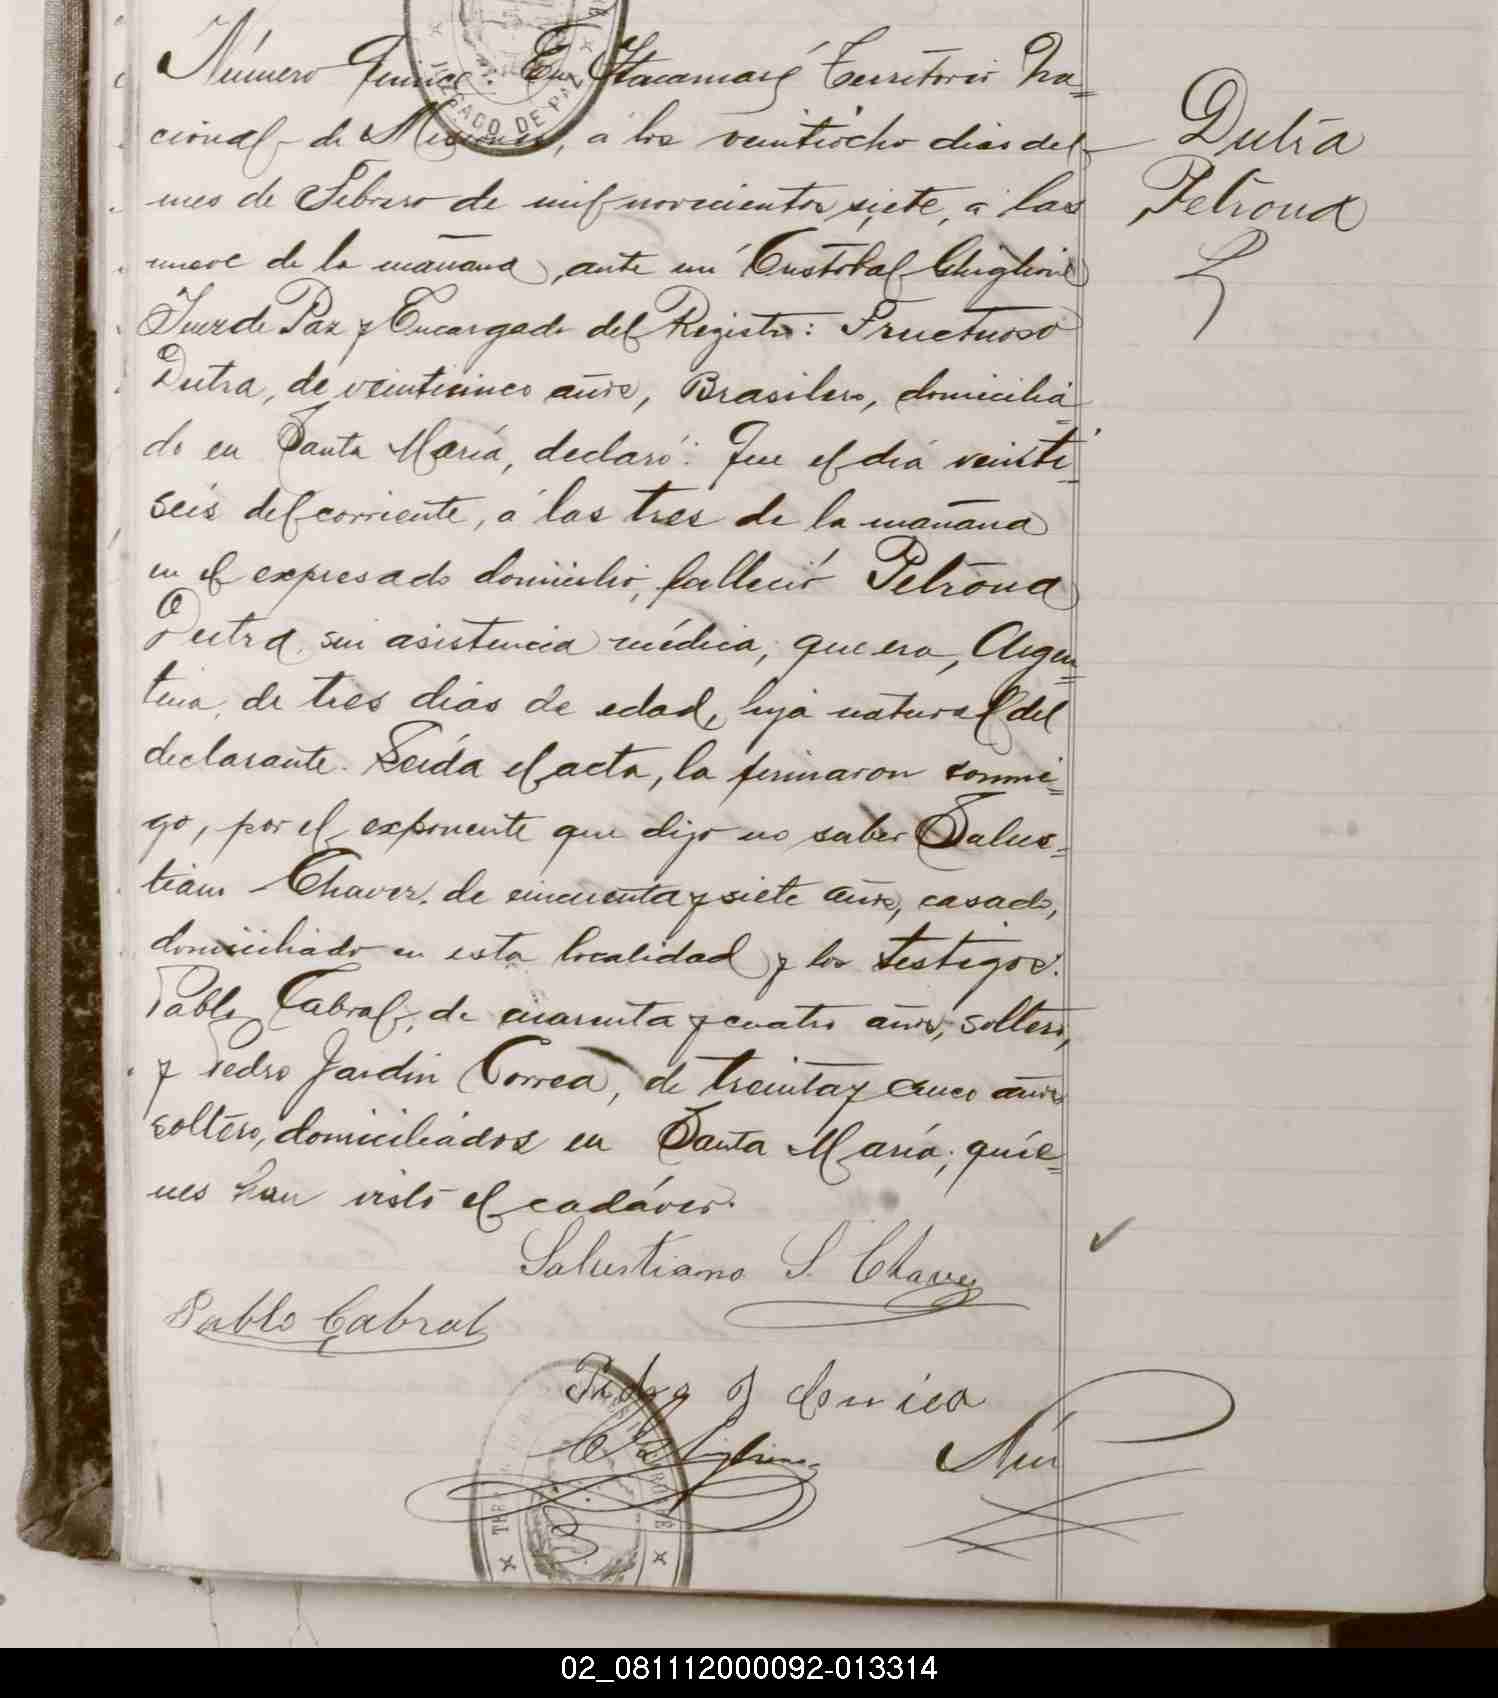 JUZGADO DE PAZ
Número Quince. En Itacaruaré Territorio Na=
cional de Misiones, á los veintiocho dias del
mes de Febrero de mil novecientos siete, á las
nueve de la mañana, ante mí Cristóbal Ghiglione
Juez de Paz y Encargado del Registro: Fructuoso
Dutra, de veinticinco años, Brasilero, domicilia
do en Santa María, declaró: Que el dia veinti=
seis del corriente, á las tres de la mañana
en el expresado domicilio, falleció Petrona
Dutra sin asistencia médica, que era, Argen=
tina, de tres dias de edad, hija natural del
declarante. Leída el acta, la firmaron conmi=
go, por el exponente que dijo no saber Salus=
tiano Chavez, de cincuenta y siete años, casado,
domiciliado en esta localidad y los testigos:
Pablo Cabral, de cuarenta y cuatro años, soltero,
y Pedro Jardin Correa, de treinta y cinco años
soltero, domiciliados en Santa María, quie=
nes han visto el cadáver.
Dutra
Petrona
Salustiano S. Chavez
Pablo Cabral
Pedro J Correa
02_081112000092-013314